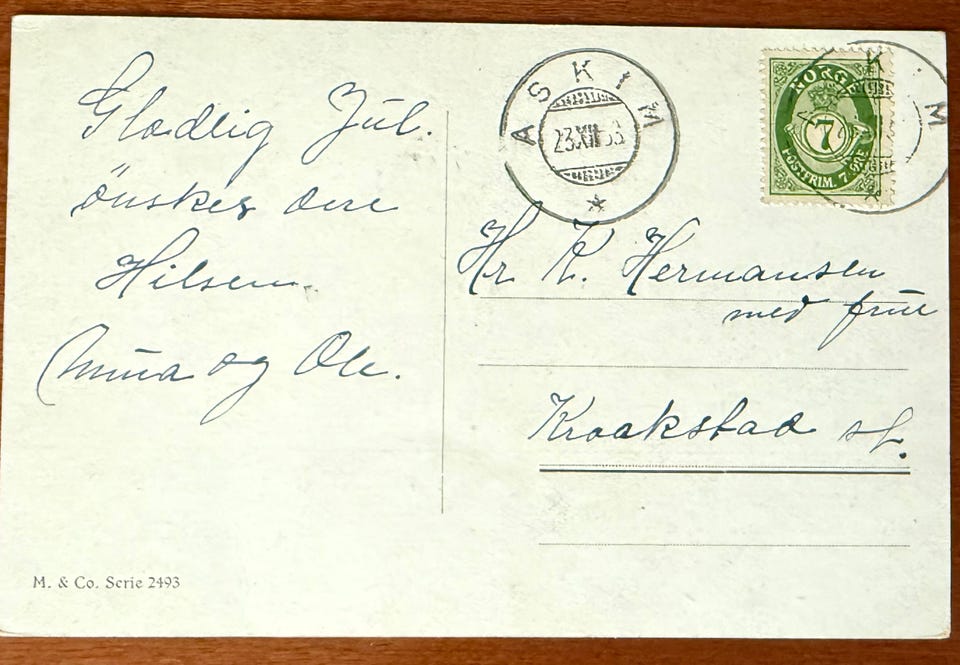 Gladelig Jul.
ønskes dere
Hilsen.
Minna og Ole.
M. & Co. Serie 2493
ASKIM
23 XII 33
NORGE
7
POSTFRIM. 7 ØRE
K M
Hr K. Hermansen
med frue
Kraakstad st.